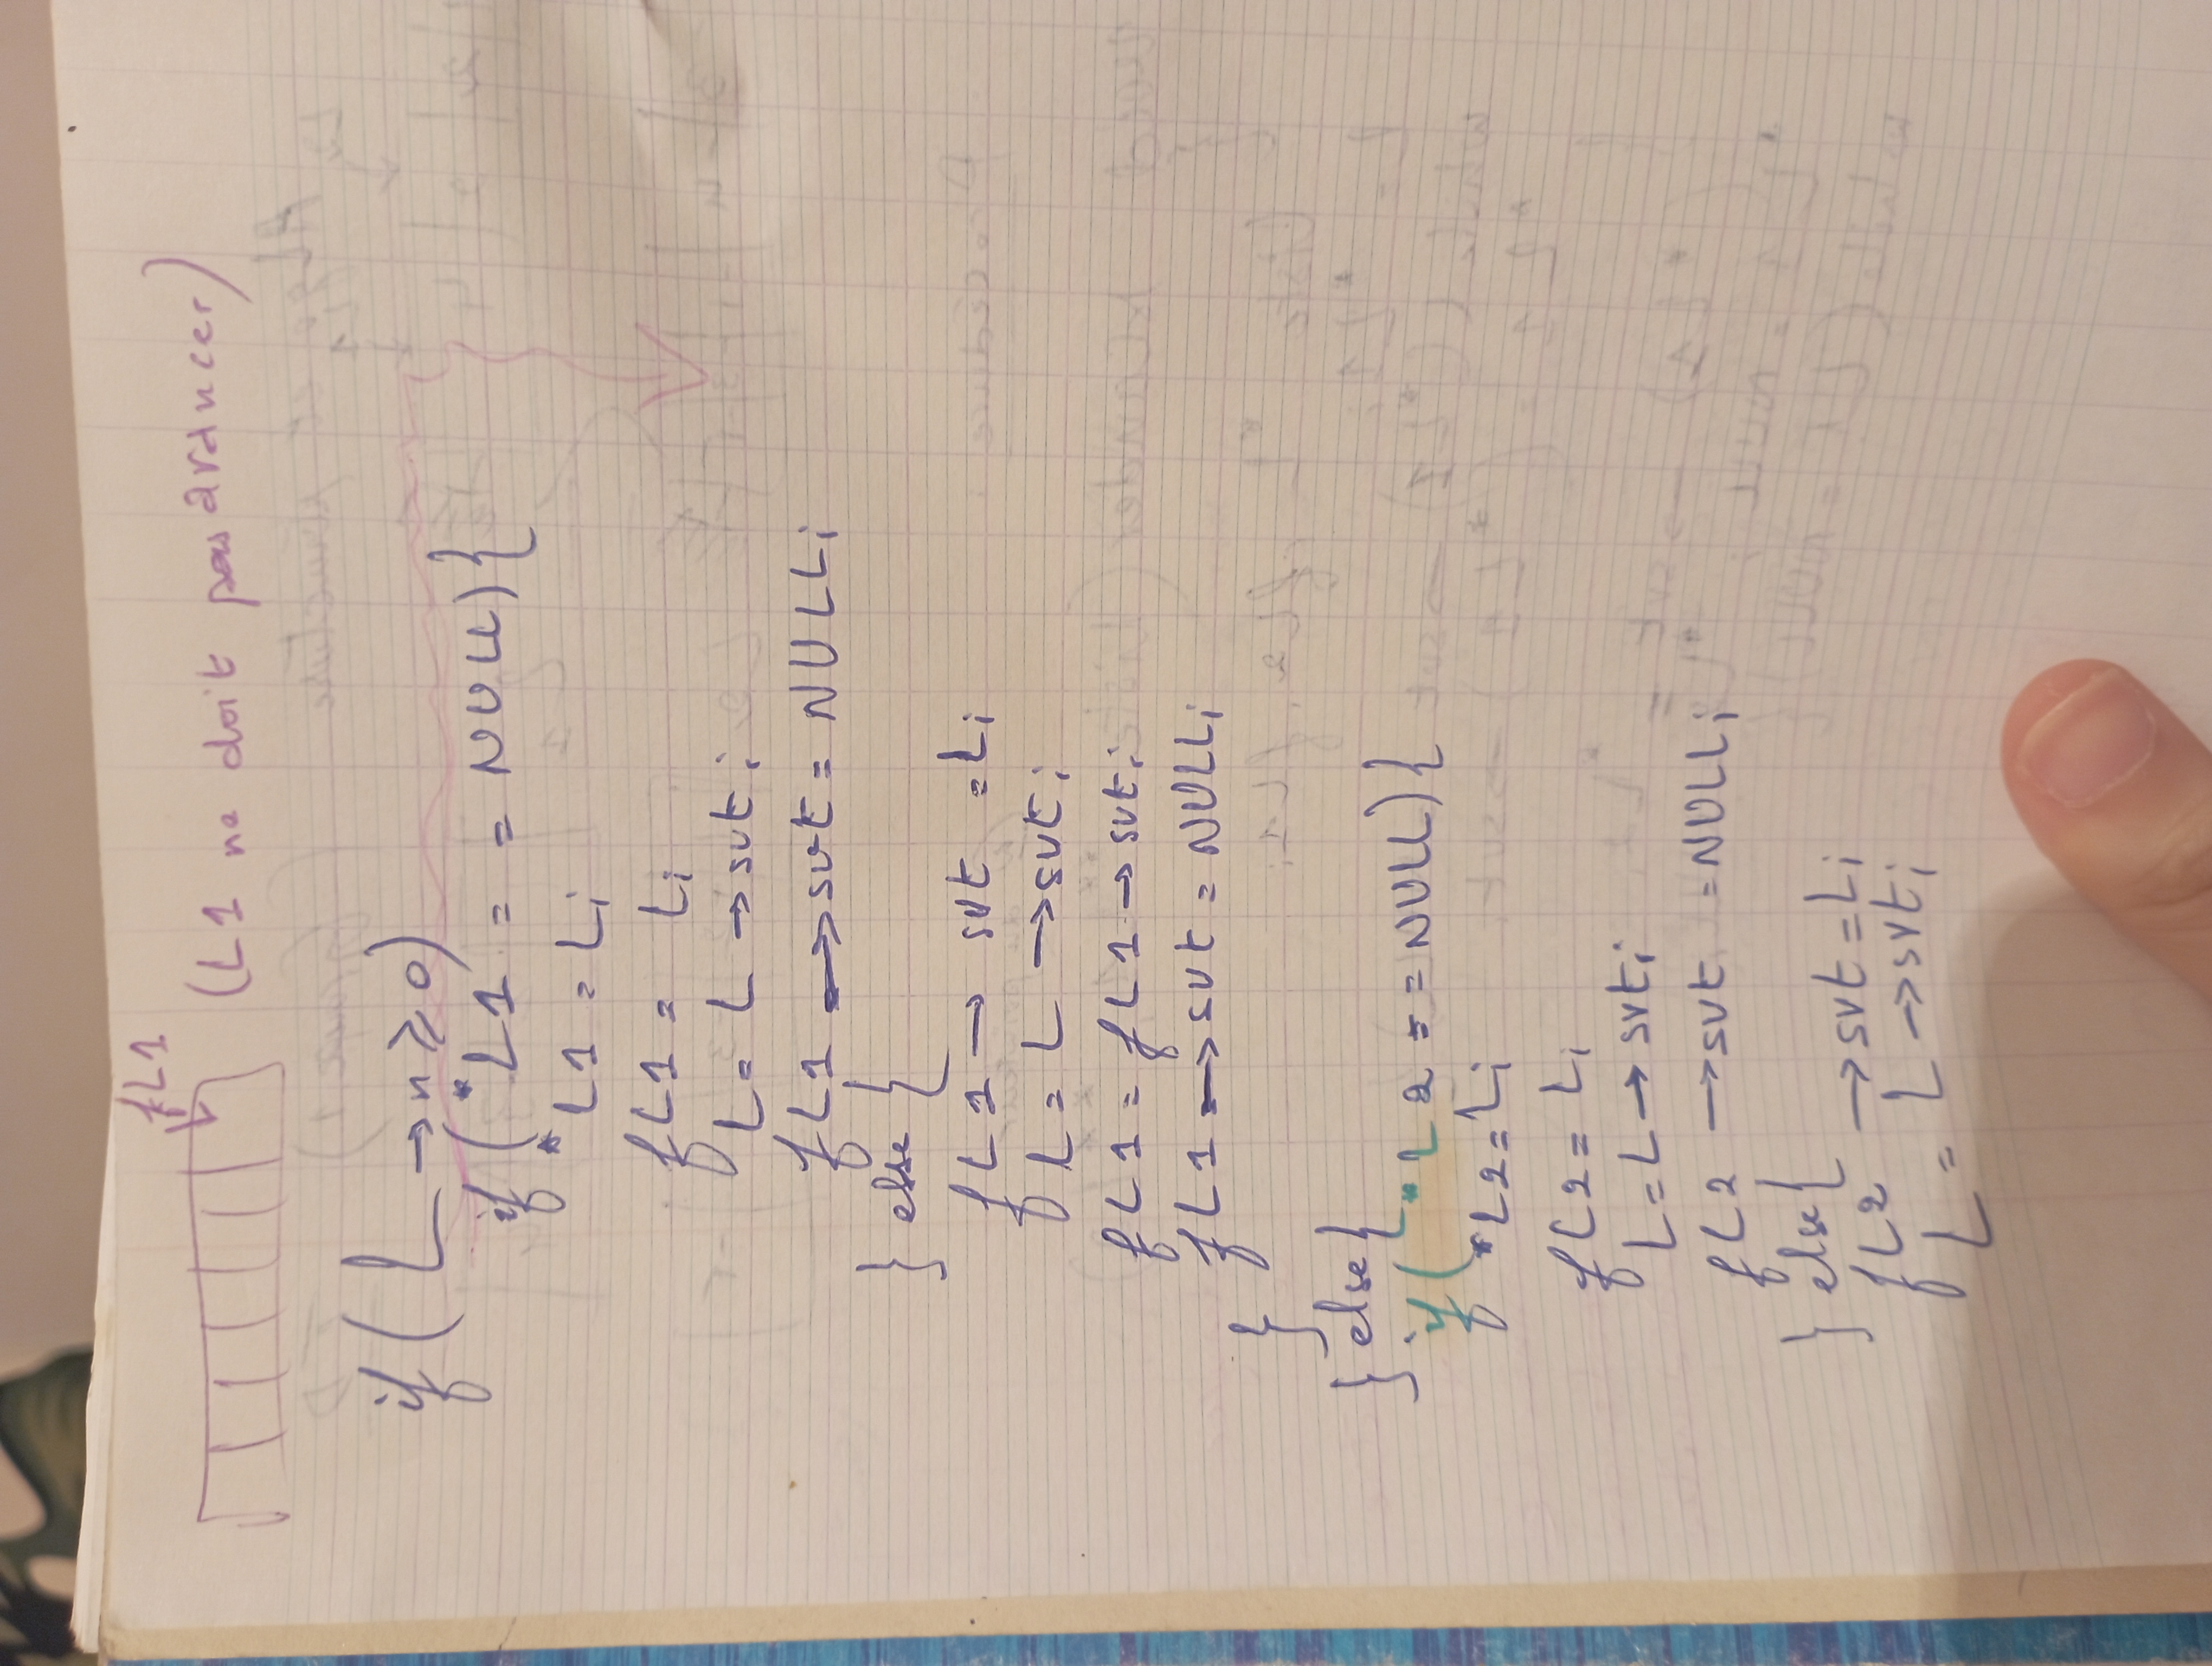 fL1
(L1 ne doit pas avancer)
if ( L → n ⩾ 0)
if ( *L1 = = NULL) {
*L1 = L;
fL1 = L;
L = L → svt;
fL1 → svt = NULL;
} else {
fL1 → svt = L;
L = L → svt;
fL1 = fL1 → svt;
fL1 → svt = NULL;
}
} else {
if ( *L2 = = NULL) {
*L2 = L;
fL2 = L;
L = L → svt;
fL2 → svt = NULL;
} else {
fL2 → svt = L;
L = L → svt;